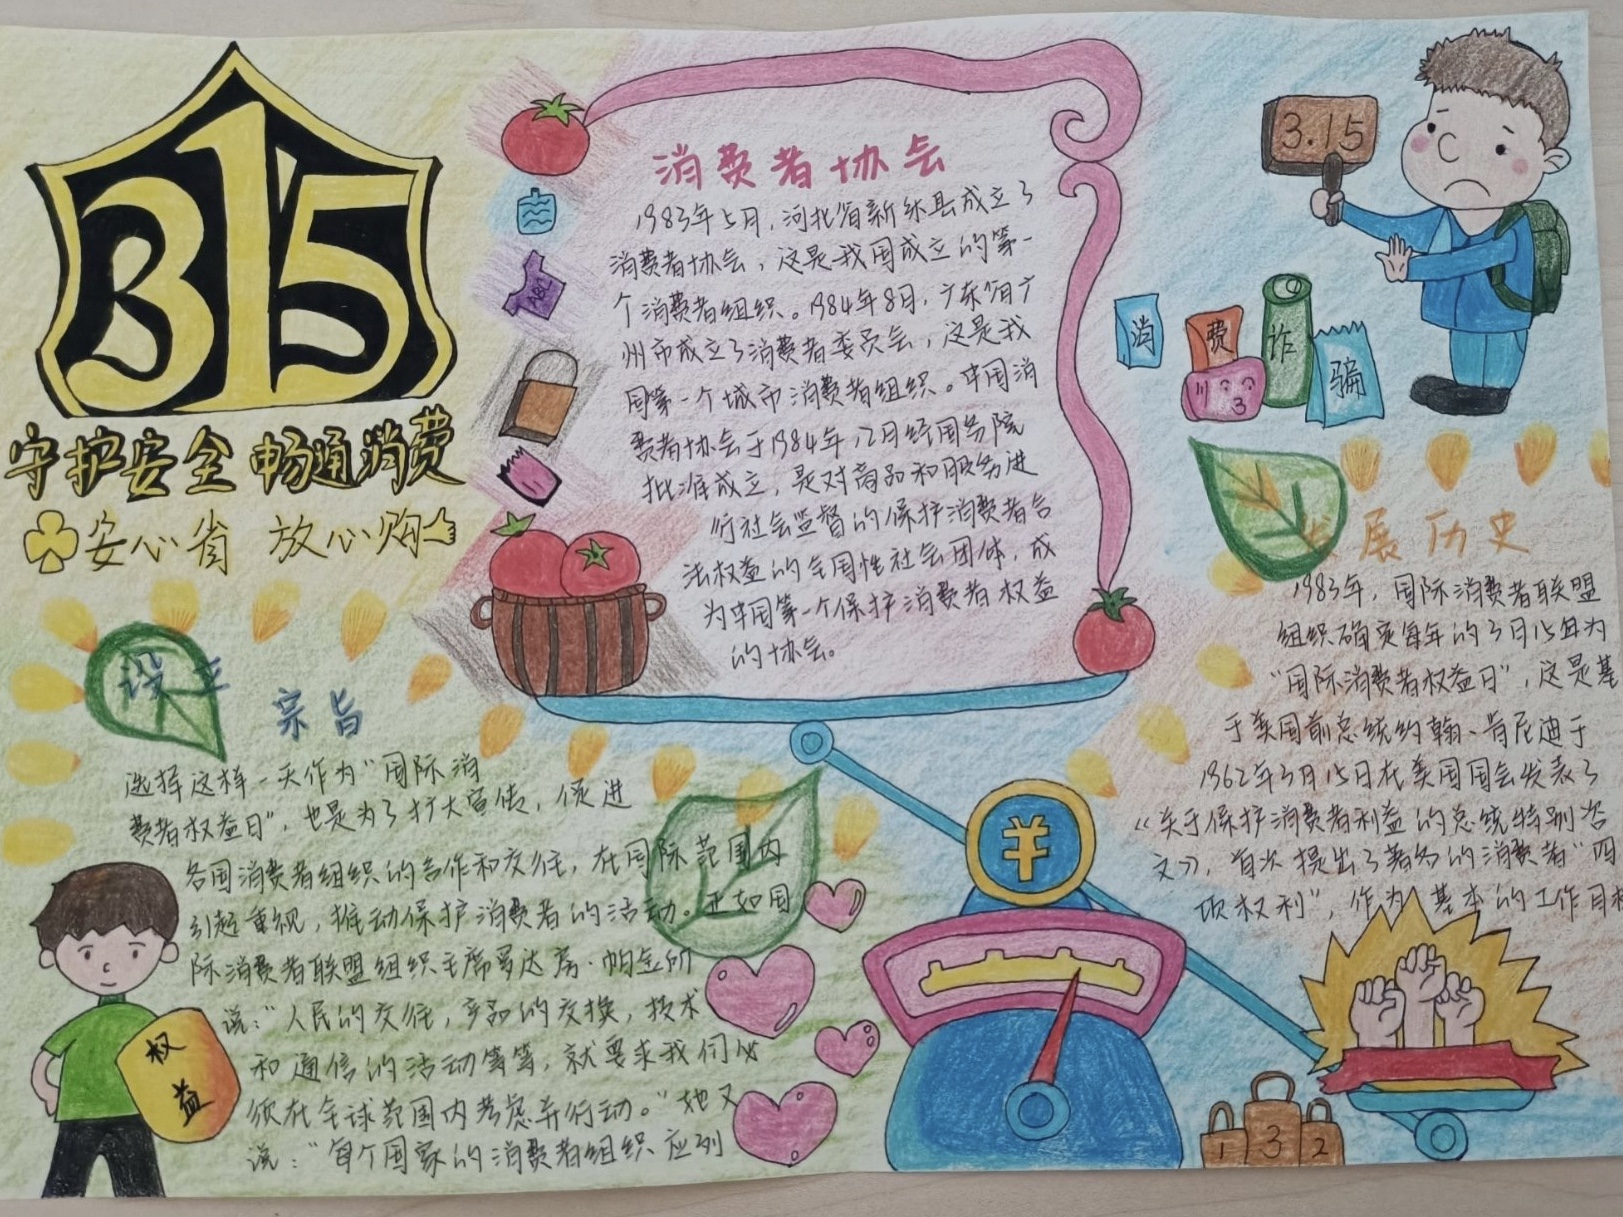 315
守护安全 畅通消费
安心省 放心购
设立
宗旨
选择这样一天作为“国际消
费者权益日”，也是为了扩大宣传，促进
各国消费者组织的合作和交往，在国际范围内
引起重视，推动保护消费者的活动。正如国
际消费者联盟组织主席罗达·帕金所
说：“人民的交往，产品的交换，技术
和通信的活动等等，就要求我们必
须在全球范围内考虑并行动。”她又
说：“每个国家的消费者组织应到
权
益
ABC
消费者协会
1983年5月，河北省新乐县成立了
消费者协会，这是我国成立的第一
个消费者组织。1984年8月，广东省广
州市成立了消费者委员会，这是我
国第一个城市消费者组织。中国消
费者协会于1984年12月经国务院
批准成立，是对商品和服务进
行社会监督的保护消费者合
法权益的全国性社会团体，成
为中国第一个保护消费者权益
的协会。
¥
3.15
消
费
诈
骗
发展历史
1983年，国际消费者联盟
组织确定每年的3月15日为
“国际消费者权益日”，这是基
于美国前总统约翰·肯尼迪于
1962年3月15日在美国国会发表了
《关于保护消费者利益的总统特别咨
文》，首次提出了著名的消费者“四
项权利”，作为基本的工作目标
1 3 2